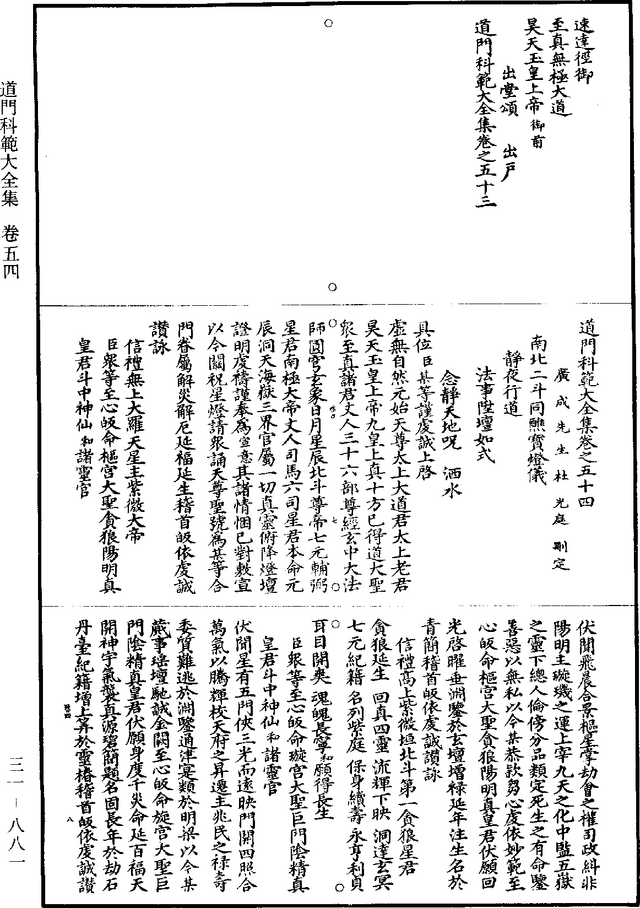 速達徑御
至真無極大道
昊天玉皇上帝御前
出堂頌 出戶
道門科範大全集卷之五十三
道門科範大全集卷之五十四
廣成先生杜光庭刪定
南北二斗同醮寶燈儀
靜夜行道
法事陞壇如式
念靜天地呪 洒水
具位臣某等謹虔誠上啓
虛無自然元始天尊太上大道君太上老君
昊天玉皇上帝九皇上真十方已得道大聖
衆至真諸君丈人三十六部尊經玄中大法
師圓穹玄象日月星辰北斗尊帝七元輔弼
星君南極大帝丈人司馬六司星君本命元
辰洞天海嶽三界官屬一切真靈俯降燈壇
證明虔禱謹奉為宣意其諸情悃已對敷宣
以今關祝星燈請衆誦天尊聖號為某等合
門眷屬解災解厄延福延生稽首皈依虔誠
讚詠
信禮無上大羅天星主紫微大帝
臣衆等至心皈命樞宮大聖貪狼陽明真
皇君斗中神仙和諸靈官
伏聞飛晨合景樞星掌劫會之權司政糾非
陽明主璇璣之運上宰九天之化中監五嶽
之靈下總人倫傍分品類定死生之有命鑒
善惡以無私以今某恭欵芻心虔依妙範至
心皈命樞宮大聖貪狼陽明真皇君伏願回
光啓曜垂淵鑒於玄壇增祿延年注生名於
青簡稽首皈依虔誠讚詠
信禮高上紫微垣北斗第一貪狼星君
貪狼延生 回真四靈 流輝下映 洞達玄冥
七元紀籍 名列紫庭 保身續壽 永亨利貞
耳目開爽 魂魄長寧 和願得長生
臣衆等至心皈命璇宮大聖巨門陰精真
皇君斗中神仙和諸靈官
伏聞星有五門俠三光而遠映門開四照合
萬氣以騰輝校天府之昇遷主兆民之祿壽
委質難逃於淵鑒通津寔類於明梁以今某
蕆事瑤壇馳誠金闕至心皈命璇宮大聖巨
門陰精真皇君伏願身度千災命延百福天
開神宇氣製真源碧簡題名固長年於劫石
丹臺紀籍增上昇於靈椿稽首皈依虔誠讚
道門科範大全集 卷五四
三一－八八一